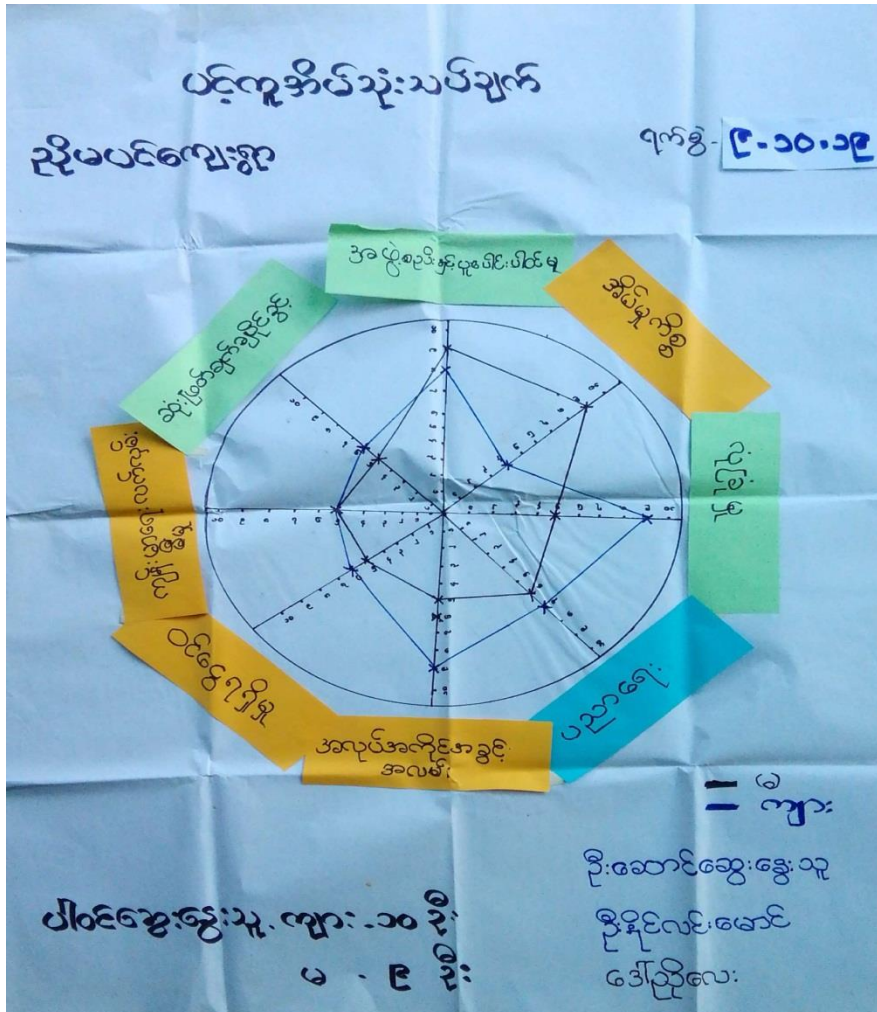 ပင့်ကူအိမ်သုံးသပ်ချက်
ညိုမပင်ကျေးရွာ
ရက်စွဲ - ၉.၁၀.၁၉
အဖွဲ့စည်းနှင့်ပူးပေါင်းပါဝင်မှု
အိမ်မှုကိစ္စ
လုံခြုံမှု
ပညာရေး
အလုပ်အကိုင်အခွင့်
အလမ်း
ဝင်ငွေရရှိမှု
ဆုံးဖြတ်ချက်ချပိုင်ခွင့်
မ
ကျား
ဦးဆောင်ဆွေးနွေးသူ
ဦးနိုင်လင်းမောင်
ဒေါ်ညိုလေး
ပါဝင်ဆွေးနွေးသူ. ကျား - ၁၀ ဦး
မ - ၉ ဦး